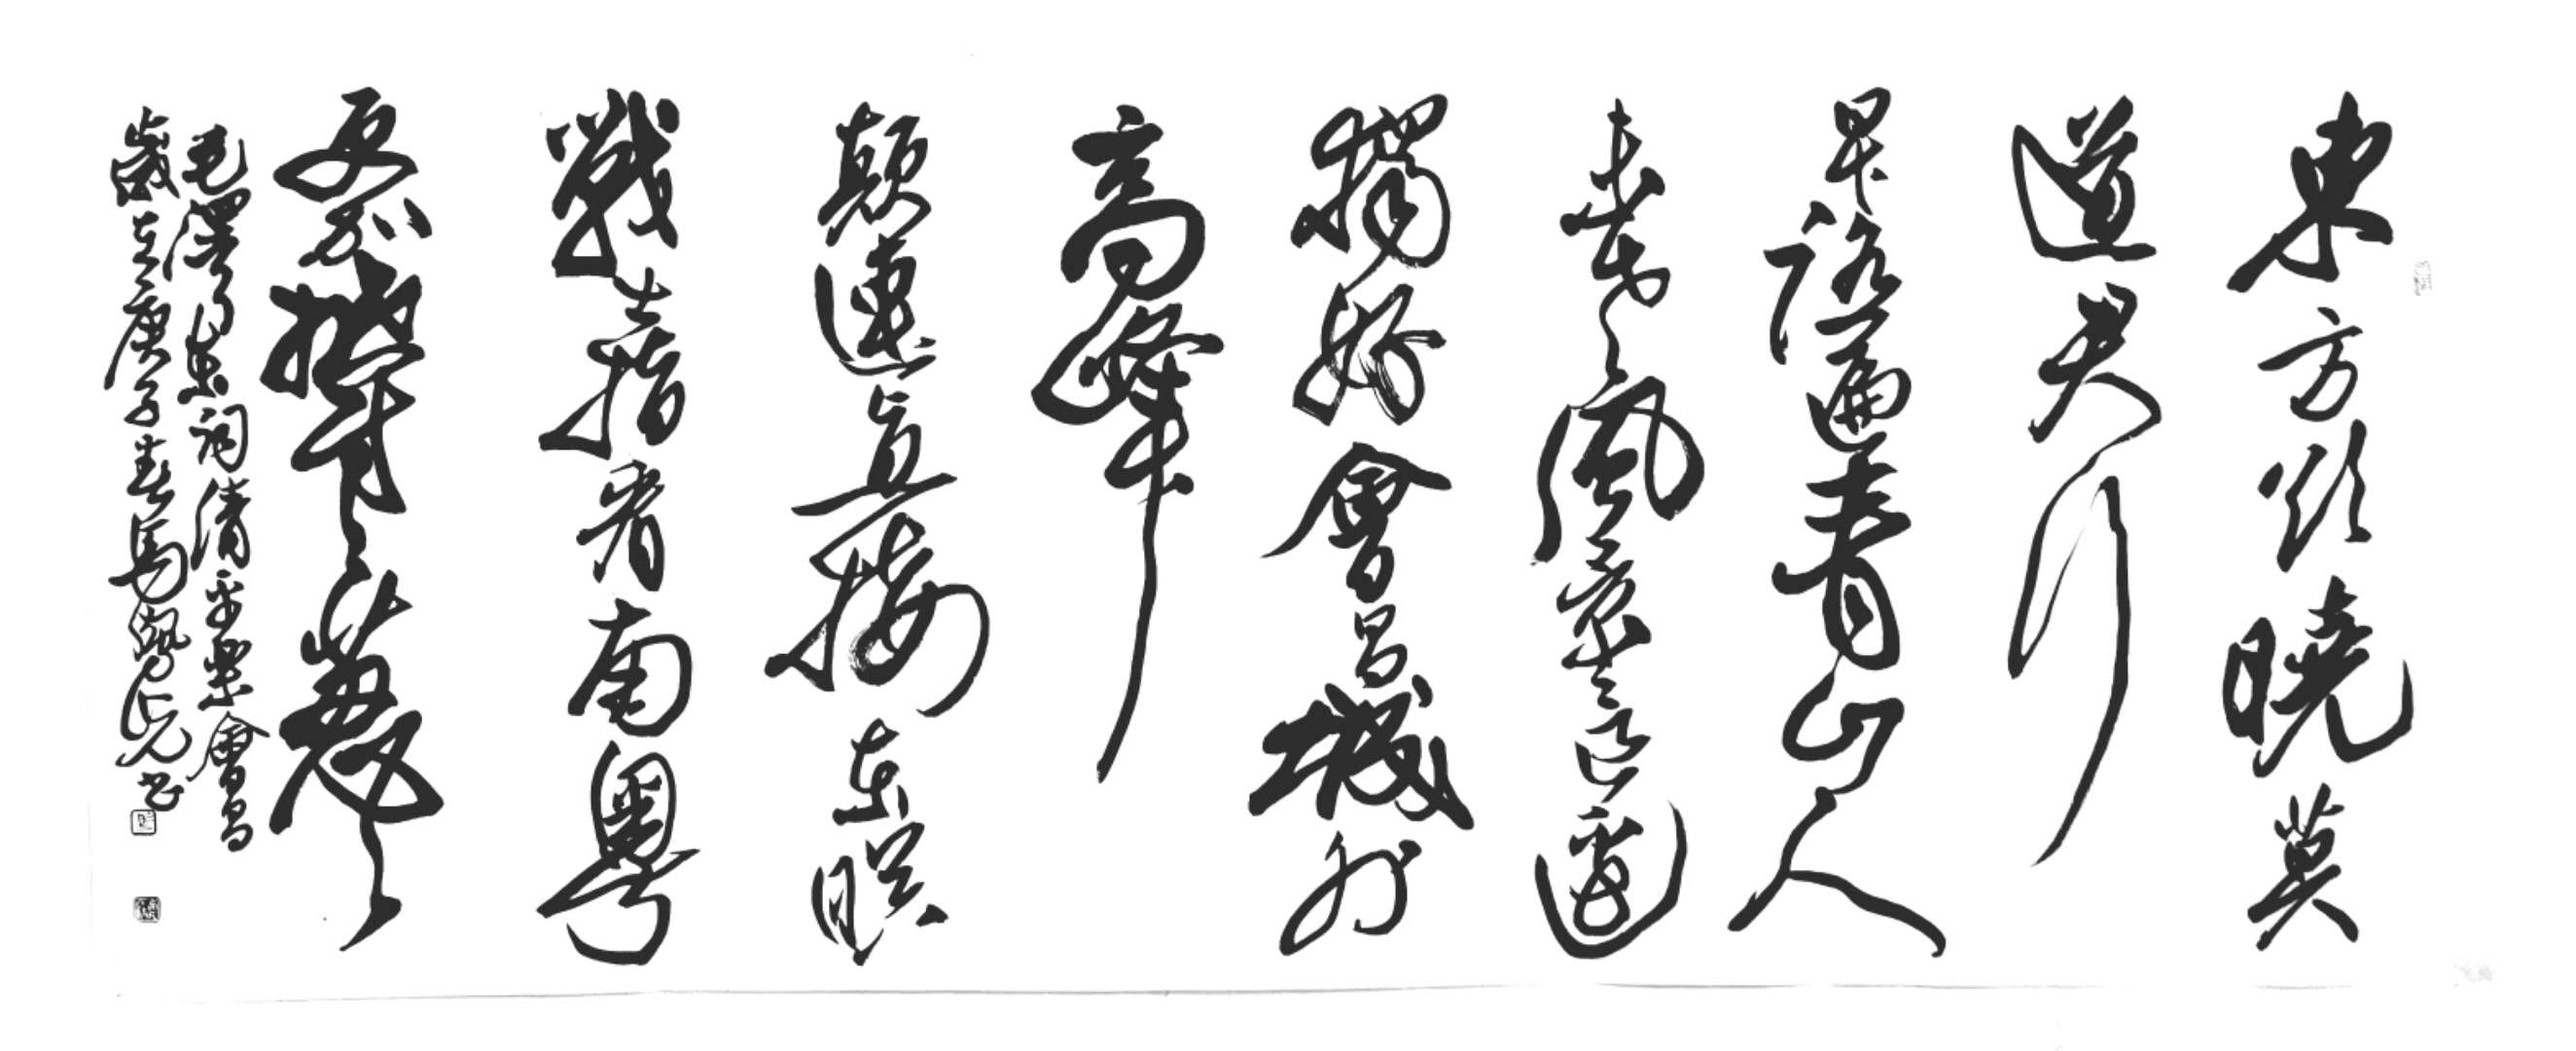 東方欲曉莫
道君行
早踏遍青山人
未老風景這邊
獨好會昌城外
高峰
顛連直接东溟
戰士指看南粵
更加鬱々蔥々
毛澤東詞清平樂會昌
歲在庚子春馬书